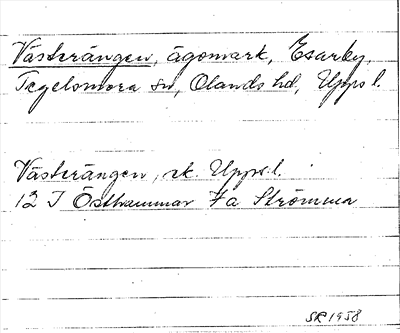 Västerängen, ägomark, Esarby,
Tegelsmora sn, Olands hd, Upps l.
Västerängen, ek. Upps. l.
12 I Östhammar 7a Strömma
SR 1958